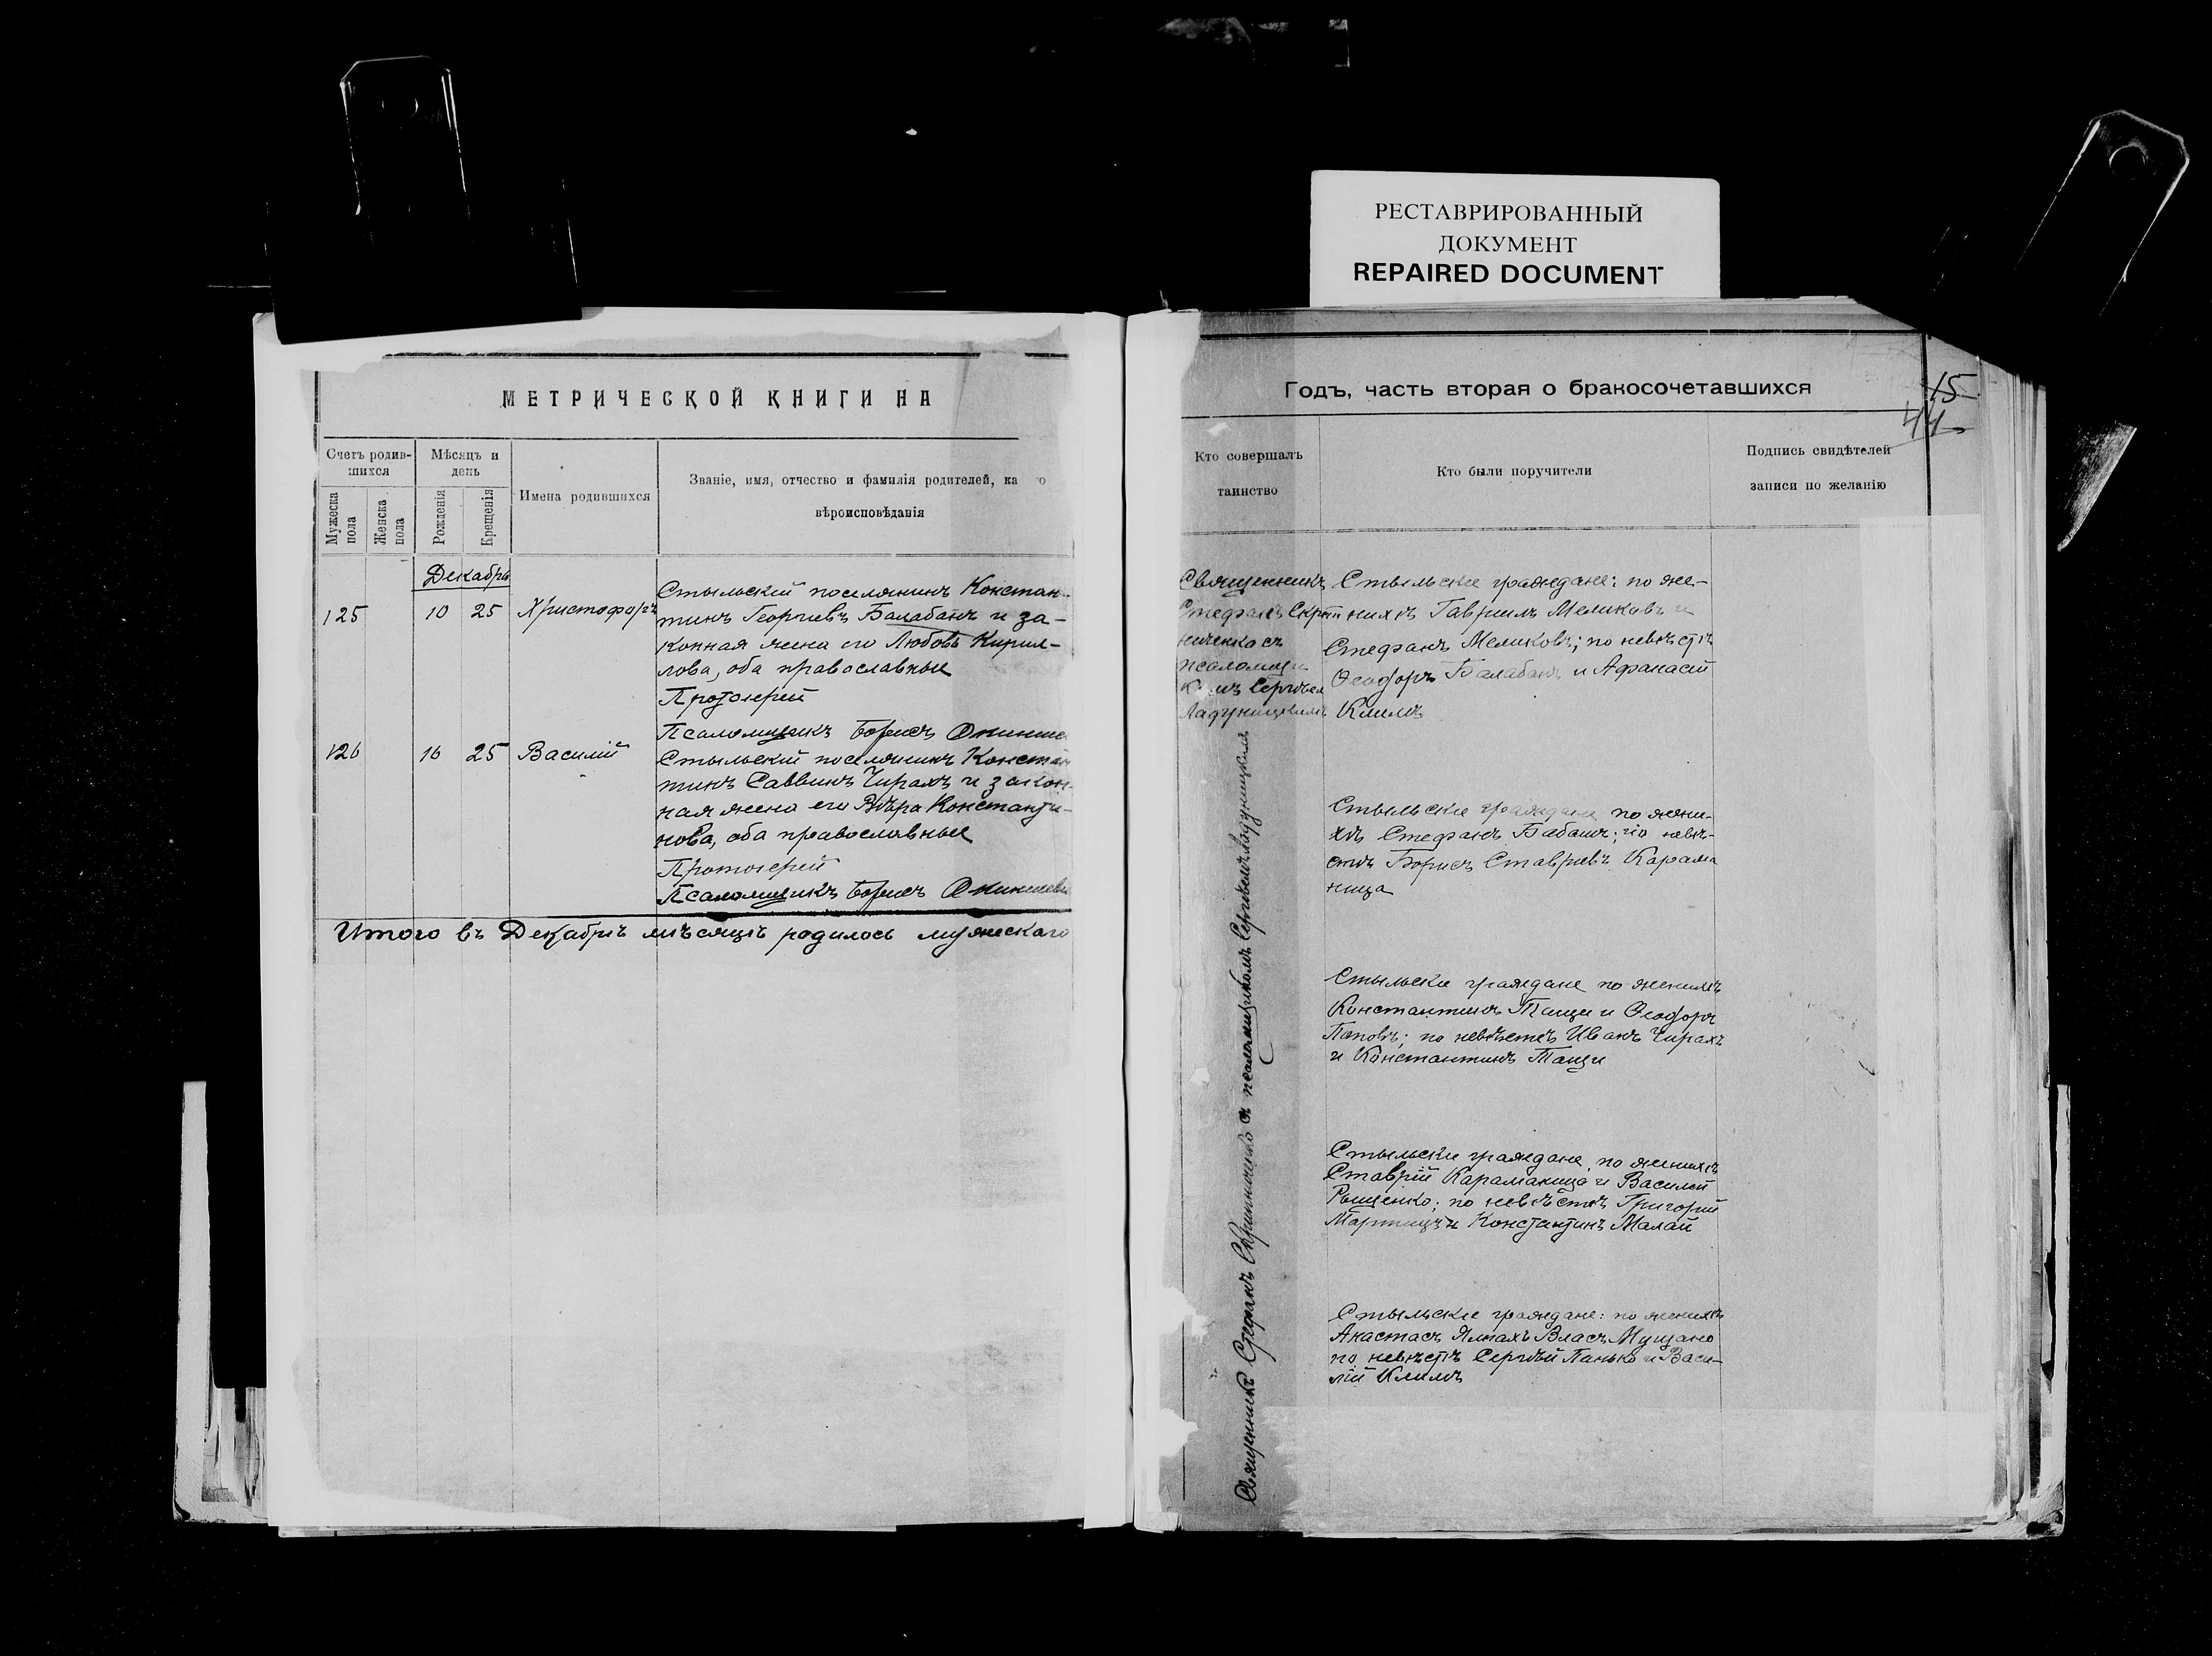 РЕСТАВРИРОВАННЫЙ
ДОКУМЕНТ
REPAIRED DOCUMENT
МЕТРИЧЕСКОЙ КНИГИ НА
Счетъ родив-
шихся
Мѣсяцъ и
день
Имена родившихся
Званіе, имя, отчество и фамилія родителей, ка о
вѣроисповѣданія
Мужеска
пола
Женска
пола
Рожденія
Крещенія
Декабрь
125 10 25 Христофоръ
Стыльскій поселянинъ Констан-
тинъ Георгіевъ Балабанъ и за-
конная жена его Любовь Кирил-
лова, оба православные
Протоіерей
Псаломщикъ Борисъ
126 16 25 Василій
Стыльскій поселянинъ Констан
тинъ Саввинъ Чирахъ и закон-
ная жена его Вѣра Константи-
нова, оба православные
Протоіерей
Псаломщикъ Борисъ
Итого въ Декабрѣ мѣсяцѣ родилось мужескаго
Годъ, часть вторая о бракосочетавшихся
15
44
Кто совершалъ
таинство
Кто были поручители
Подпись свидѣтелей
записи по желанію
Священникъ
Стефанъ Скрип
ниченко съ
псаломщи
комъ Сергѣем
Ладуницкимъ
Стыльскіе граждане: по же-
нихѣ Гавріилъ Меликовъ и
Стефанъ Меликовъ; по невѣстѣ
Ѳеодоръ Балабанъ и Афанасій
Климъ
Стыльскіе граждане по жени-
хѣ Стефанъ Бабашъ; по невѣ-
стѣ Борисъ Ставріевъ Карама
ница
Стыльскіе граждане по женихѣ
Константинъ Тащи и Ѳеодоръ
Поповъ; по невѣстѣ Иванъ Чирахъ
и Константинъ Тащи
Стыльскіе граждане, по женихѣ
Ставрій Караманица и Василій
по невѣстѣ Григорій
и Константинъ Малай
Стыльскіе граждане: по женихѣ
Анастасъ Ялпахъ Власъ Мущано
по невѣстѣ Сергѣй Панько и Васи-
лій Климъ
Священникъ Стефанъ Скрипниченко съ псаломщикомъ Сергѣемъ Ладуницкимъ